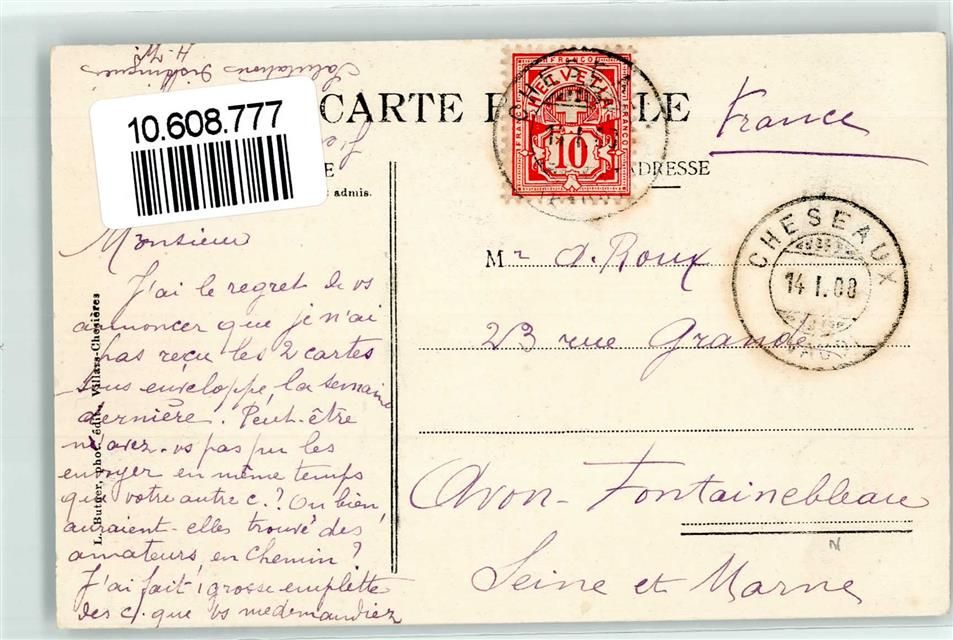 Salutations distinguées
10.608.777
CARTE P LE
HELVETIA
FRANCO
FRANCO
10
France
ADRESSE
E
admis.
CHESEAUX
14 I. 08
VAUD
Monsieur
J'ai le regret de vs
annoncer que je n'ai
pas reçu les 2 cartes
sous enveloppe, la semaine
dernière. Peut-être
n'avez-vs pas pu les
envoyer en même temps
que votre autre c.? Ou bien,
auraient-elles trouvé des
amateurs, en chemin?
J'ai fait 1 grosse emplette
des c/. que vs me demandiez
L. Butner, phot. édit., Villars-Chesières
Mr A. Roux
23 rue Grande
Avon-Fontainebleau
Seine et Marne